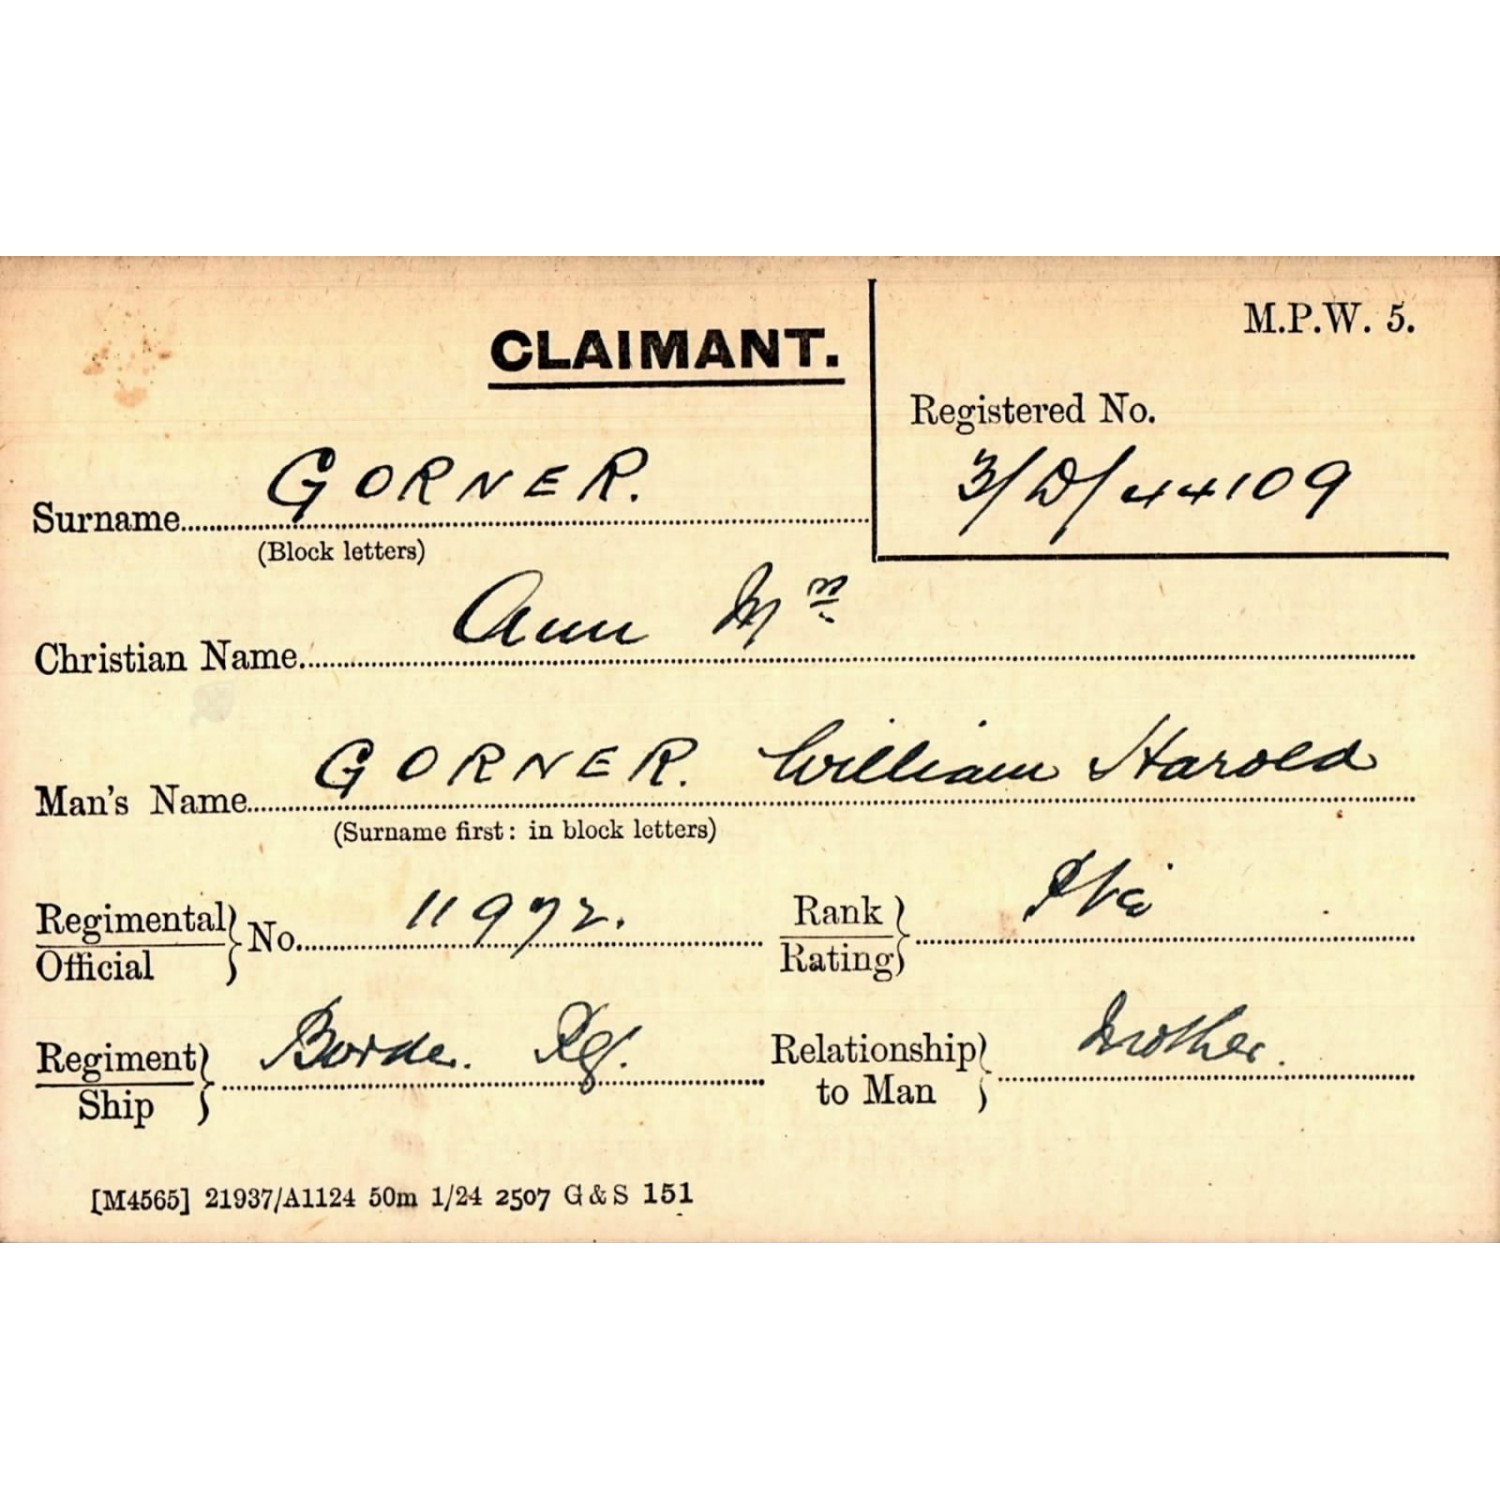 M.P.W. 5.
CLAIMANT.
Registered No.
3/D/44109
Surname GORNER.
(Block letters)
Christian Name Ann Mrs
Man's Name GORNER. William Harold
(Surname first: in block letters)
Regimental/Official No. 11972. Rank/Rating Pte
Regiment/Ship Border. Rg. Relationship to Man Mother.
[M4565] 21937/A1124 50m 1/24 2507 G & S 151